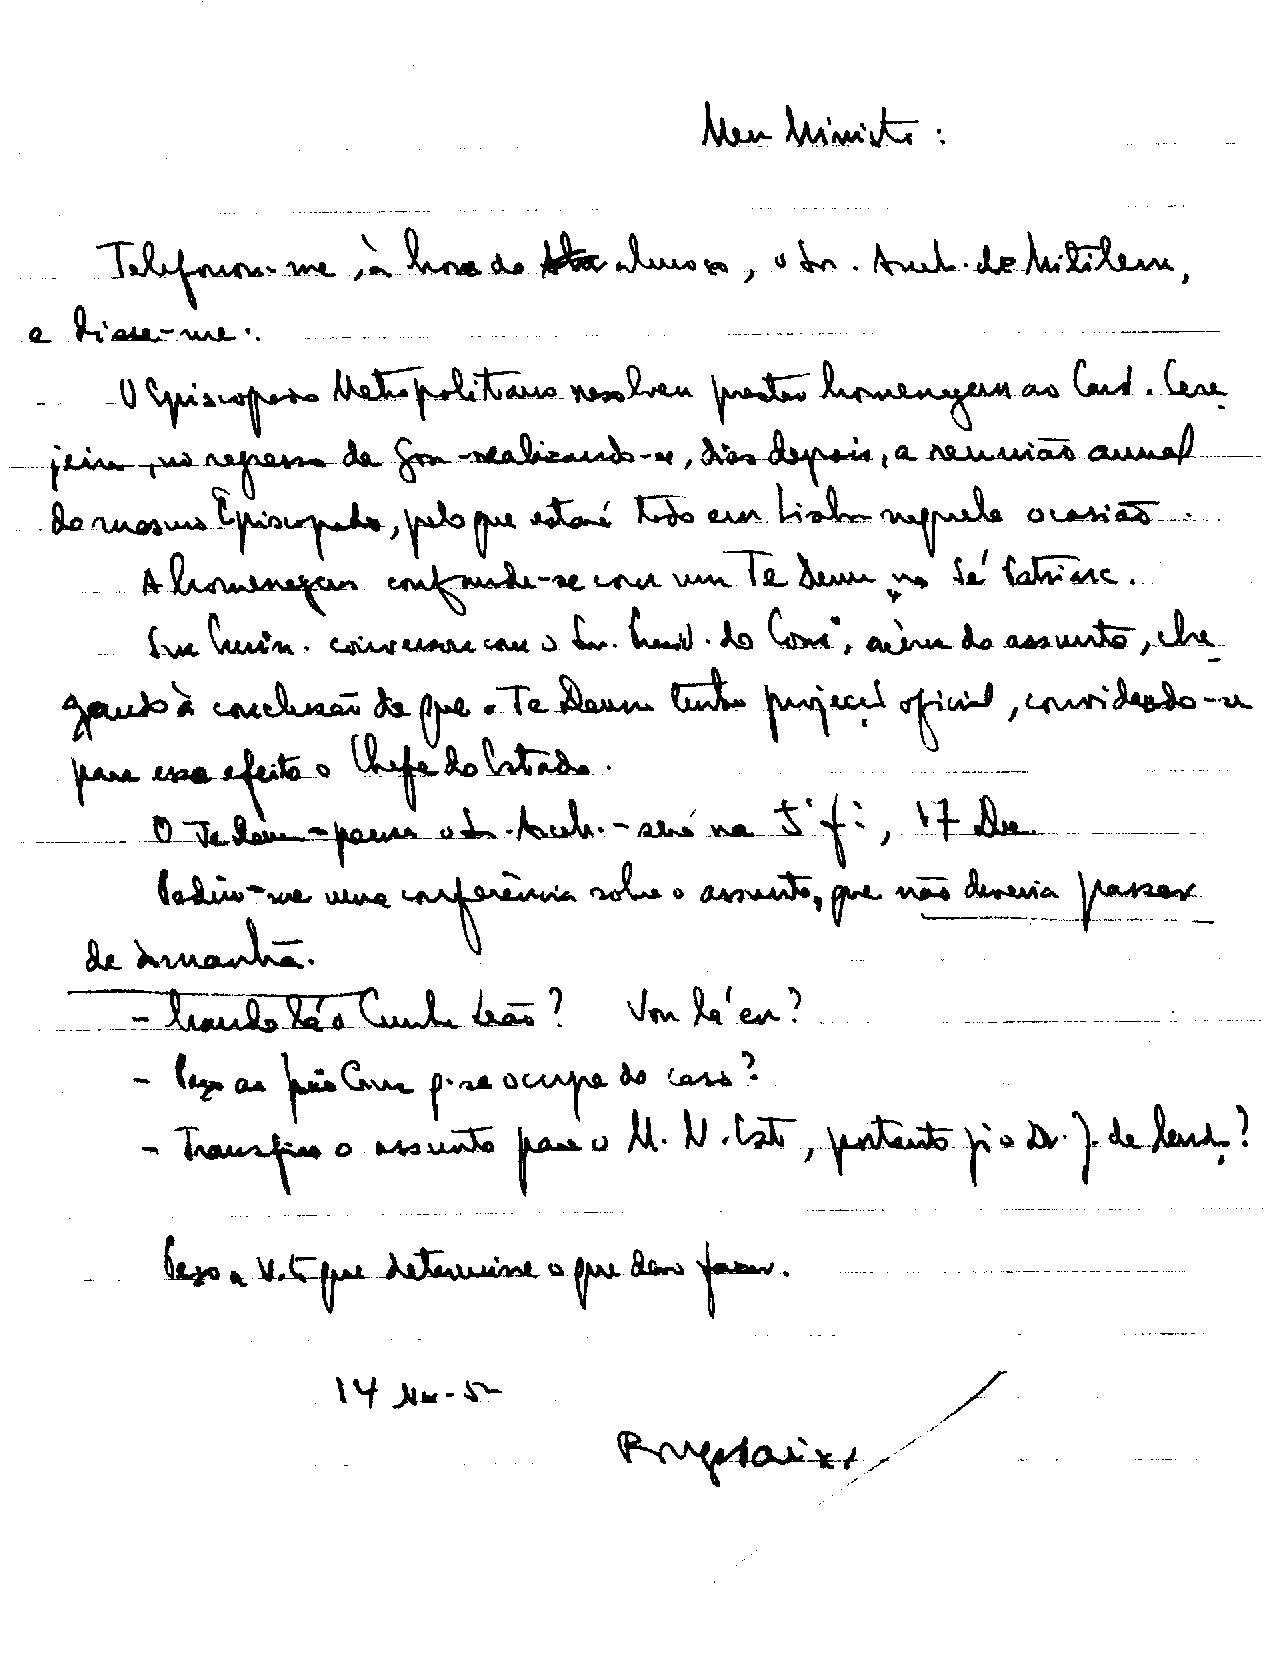 Meu Ministro:
Telefonou-me, à hora do almoço, o Sr. Arceb. de Mitilene,
e disse-me:
O Episcopado Metropolitano resolveu prestar homenagem ao Card. Cere
jeira, no regresso de Goa - realizando-se, dias depois, a reunião anual
do mesmo Episcopado, pelo que estará todo em Lisboa naquela ocasião.
A homenagem confunde-se com um Te Deum, na Sé Patriarc.
Sua Emin. conversou com o Sr. Presid. do Cons., acêrca do assunto, che
gando à conclusão de que o Te Deum tenha projecç. oficial, convidando-se
para esse efeito o Chefe do Estado.
O Te Deum - pensa o Sr. Arceb. - será na 5ª fª, 17 Dez.
Pediu-me uma conferência sobre o assunto, que não deveria passar
de àmanhã.
- Mando lá o Cunha Leão? Vou lá eu?
- Peço ao p. se ocupe do caso?
- Transfiro o assunto para o M. N. Estr, portanto p/ o Dr. J. de
Peço a V. E. que determine o que devo fazer.
14 Nov - 52